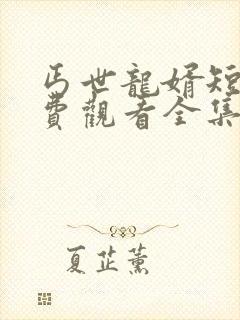 丐世龍婿短
費觀看全集
夏芷薰